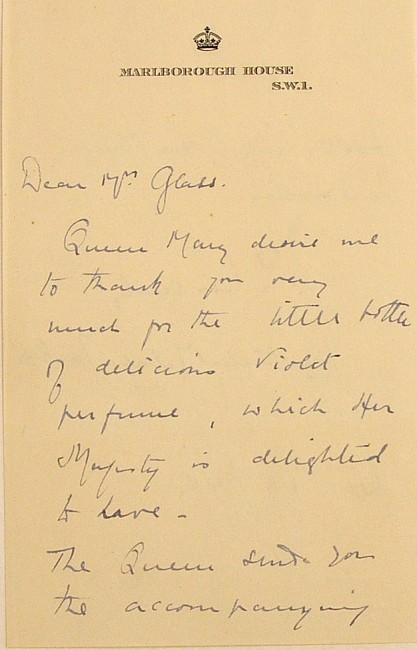 MARLBOROUGH HOUSE
S.W.1.
Dear Mrs. Glass.
Queen Mary desires me
to thank you very
much for the little bottle
of delicious Violet
perfume, which Her
Majesty is delighted
to have -
The Queen sends you
the accompanying